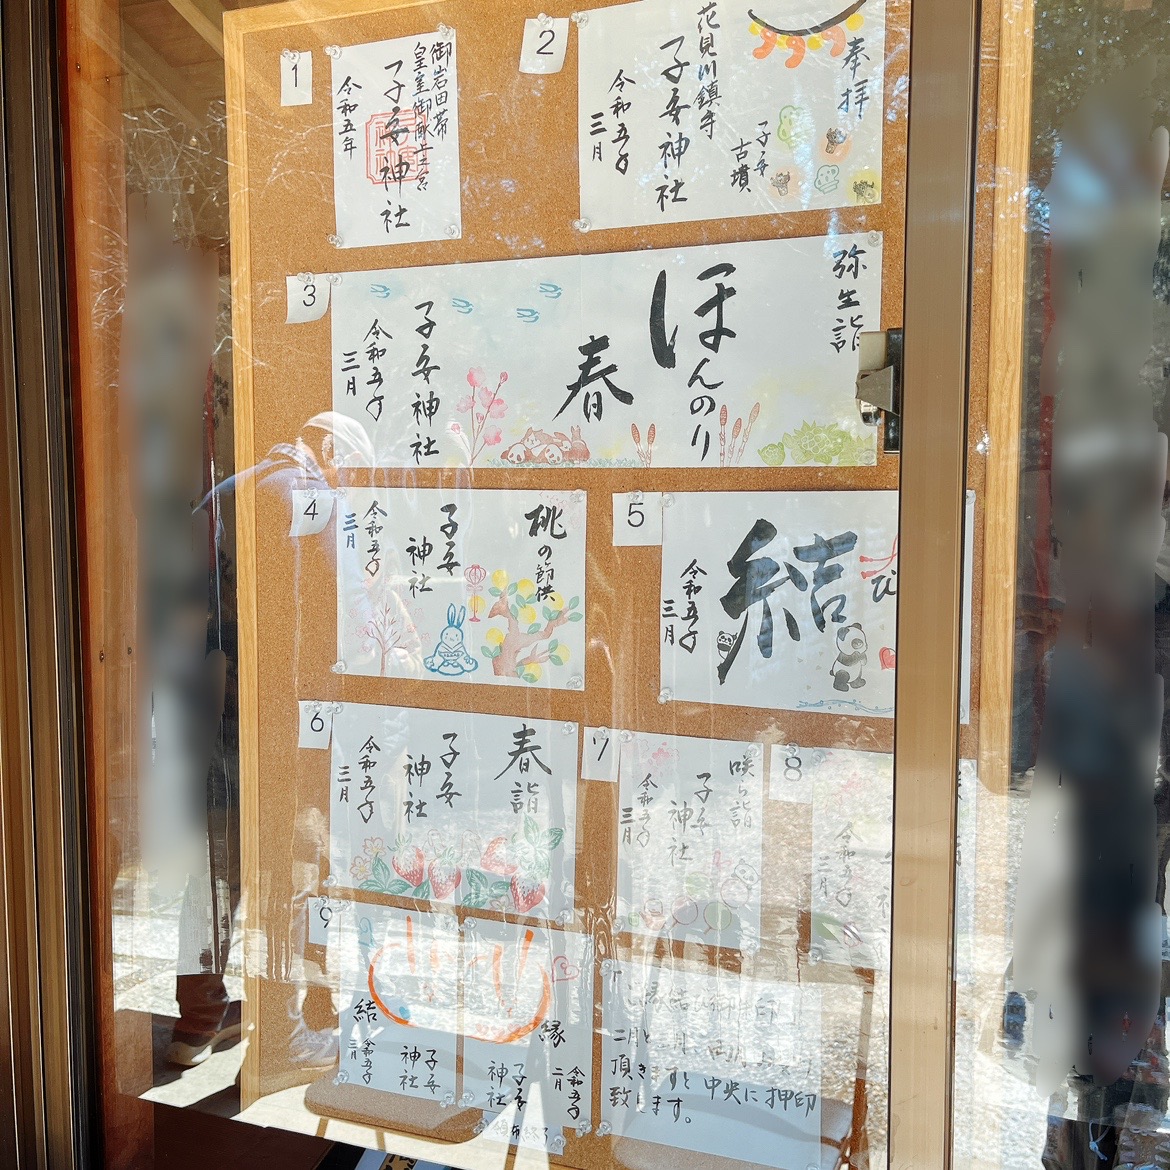 1
御岩田帯
皇室御献上之宮
子安神社
令和五年
2
奉拝
子安
古墳
花見川鎮守
子安神社
令和五年
三月
3
弥生詣
ほんのり
春
子安神社
令和五年
三月
4
桃の節供
子安
神社
令和五年
三月
5
結
び
令和五年
三月
6
春詣
子安
神社
令和五年
三月
7
咲ら詣
子安
神社
令和五年
三月
8
令和五年
三月
9
結
子安
神社
令和五年
三月
縁
子安
神社
令和五年
二月
中央に押印
頂きますと
致します。